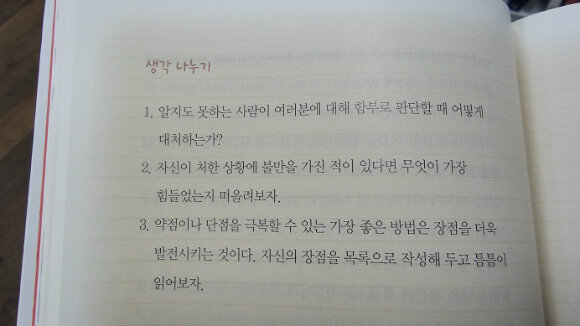 생각 나누기
1. 알지도 못하는 사람이 여러분에 대해 함부로 판단할 때 어떻게
대처하는가?
2. 자신이 처한 상황에 불만을 가진 적이 있다면 무엇이 가장
힘들었는지 떠올려보자.
3. 약점이나 단점을 극복할 수 있는 가장 좋은 방법은 장점을 더욱
발전시키는 것이다. 자신의 장점을 목록으로 작성해 두고 틈틈이
읽어보자.